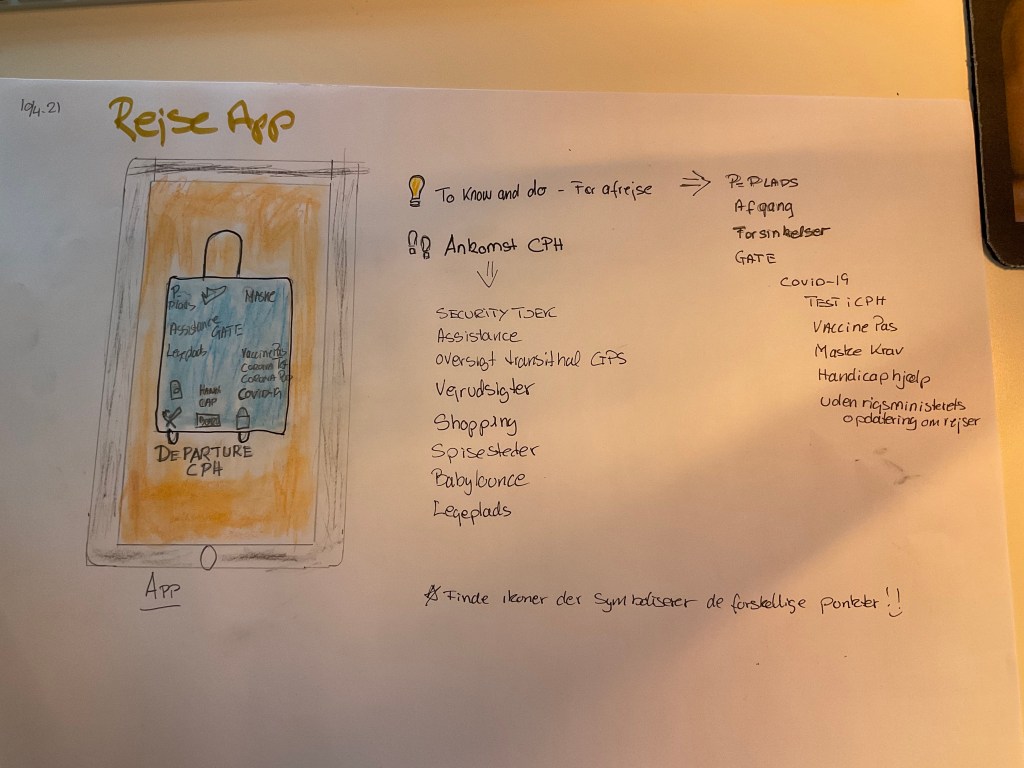 10/4-21
Rejse App
P-
plads
MASKE
Assistance
GATE
Legeplads
Vaccine Pas
CORONA
CORONA
HANDI
CAP
COVID-19
DEPARTURE
CPH
APP
To Know and do - Før afrejse
P-PLADS
Afgang
Forsinkelser
GATE
COVID-19
TEST i CPH
VACCine Pas
Maske Krav
Handicaphjælp
Udenrigsministeriets
opdatering om rejser
Ankomst CPH
SECURITY TJEK
Assistance
oversigt transithal GPS
Vejrudsigter
Shopping
Spisesteder
Babylounce
Legeplads
Finde ikoner der Symboliserer de forskellige punkter!!